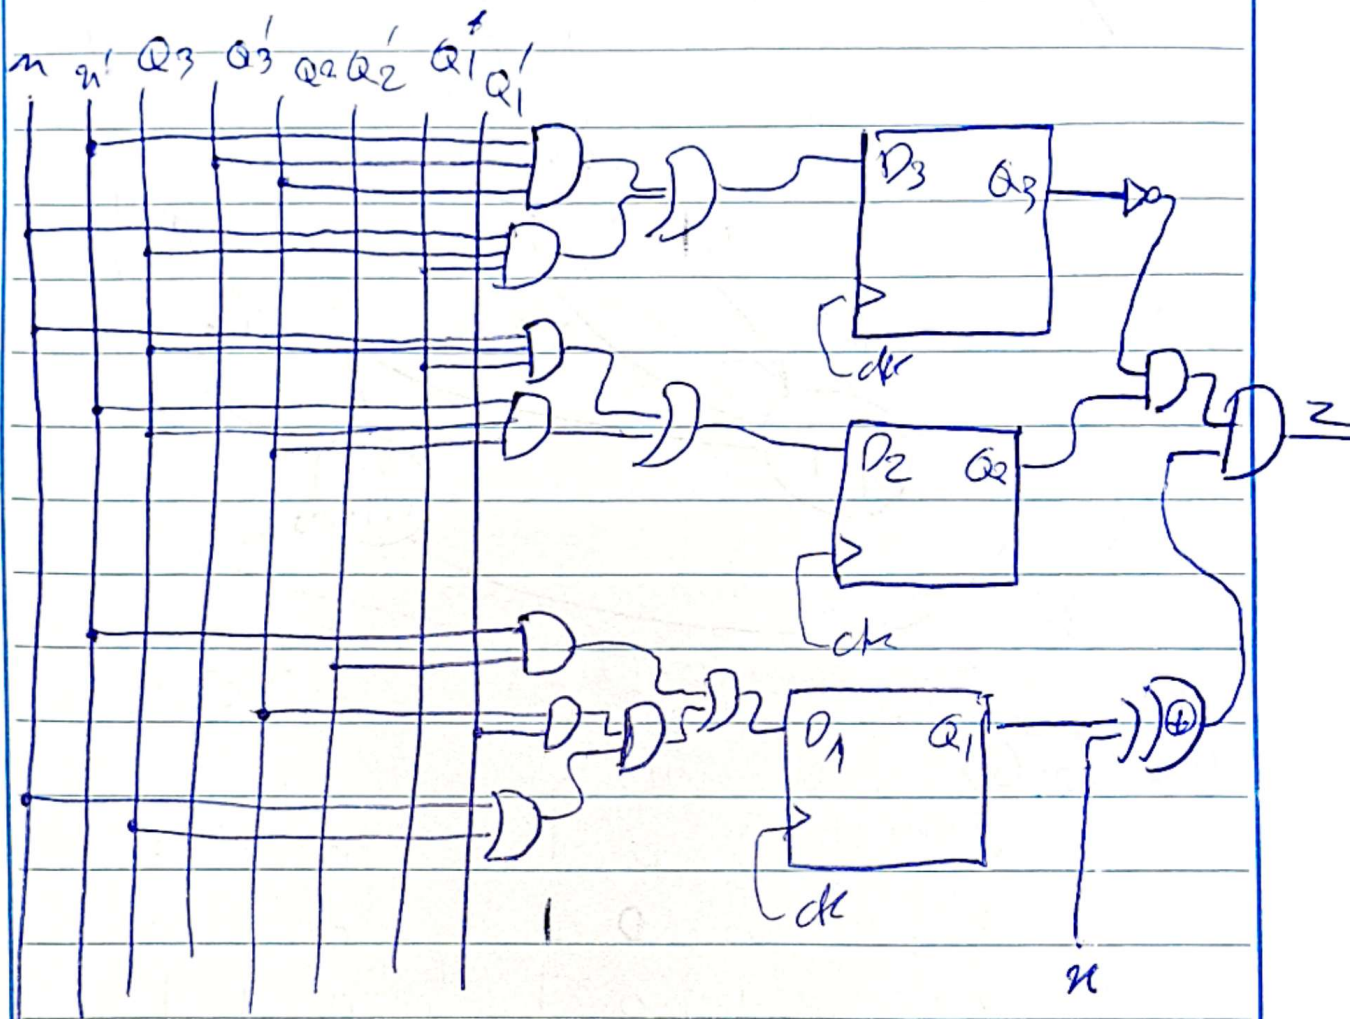 x x' Q3 Q3' Q2 Q2' Q1 Q1'
D3 Q3
clk
Z
D2 Q2
clk
D1 Q1
clk
x